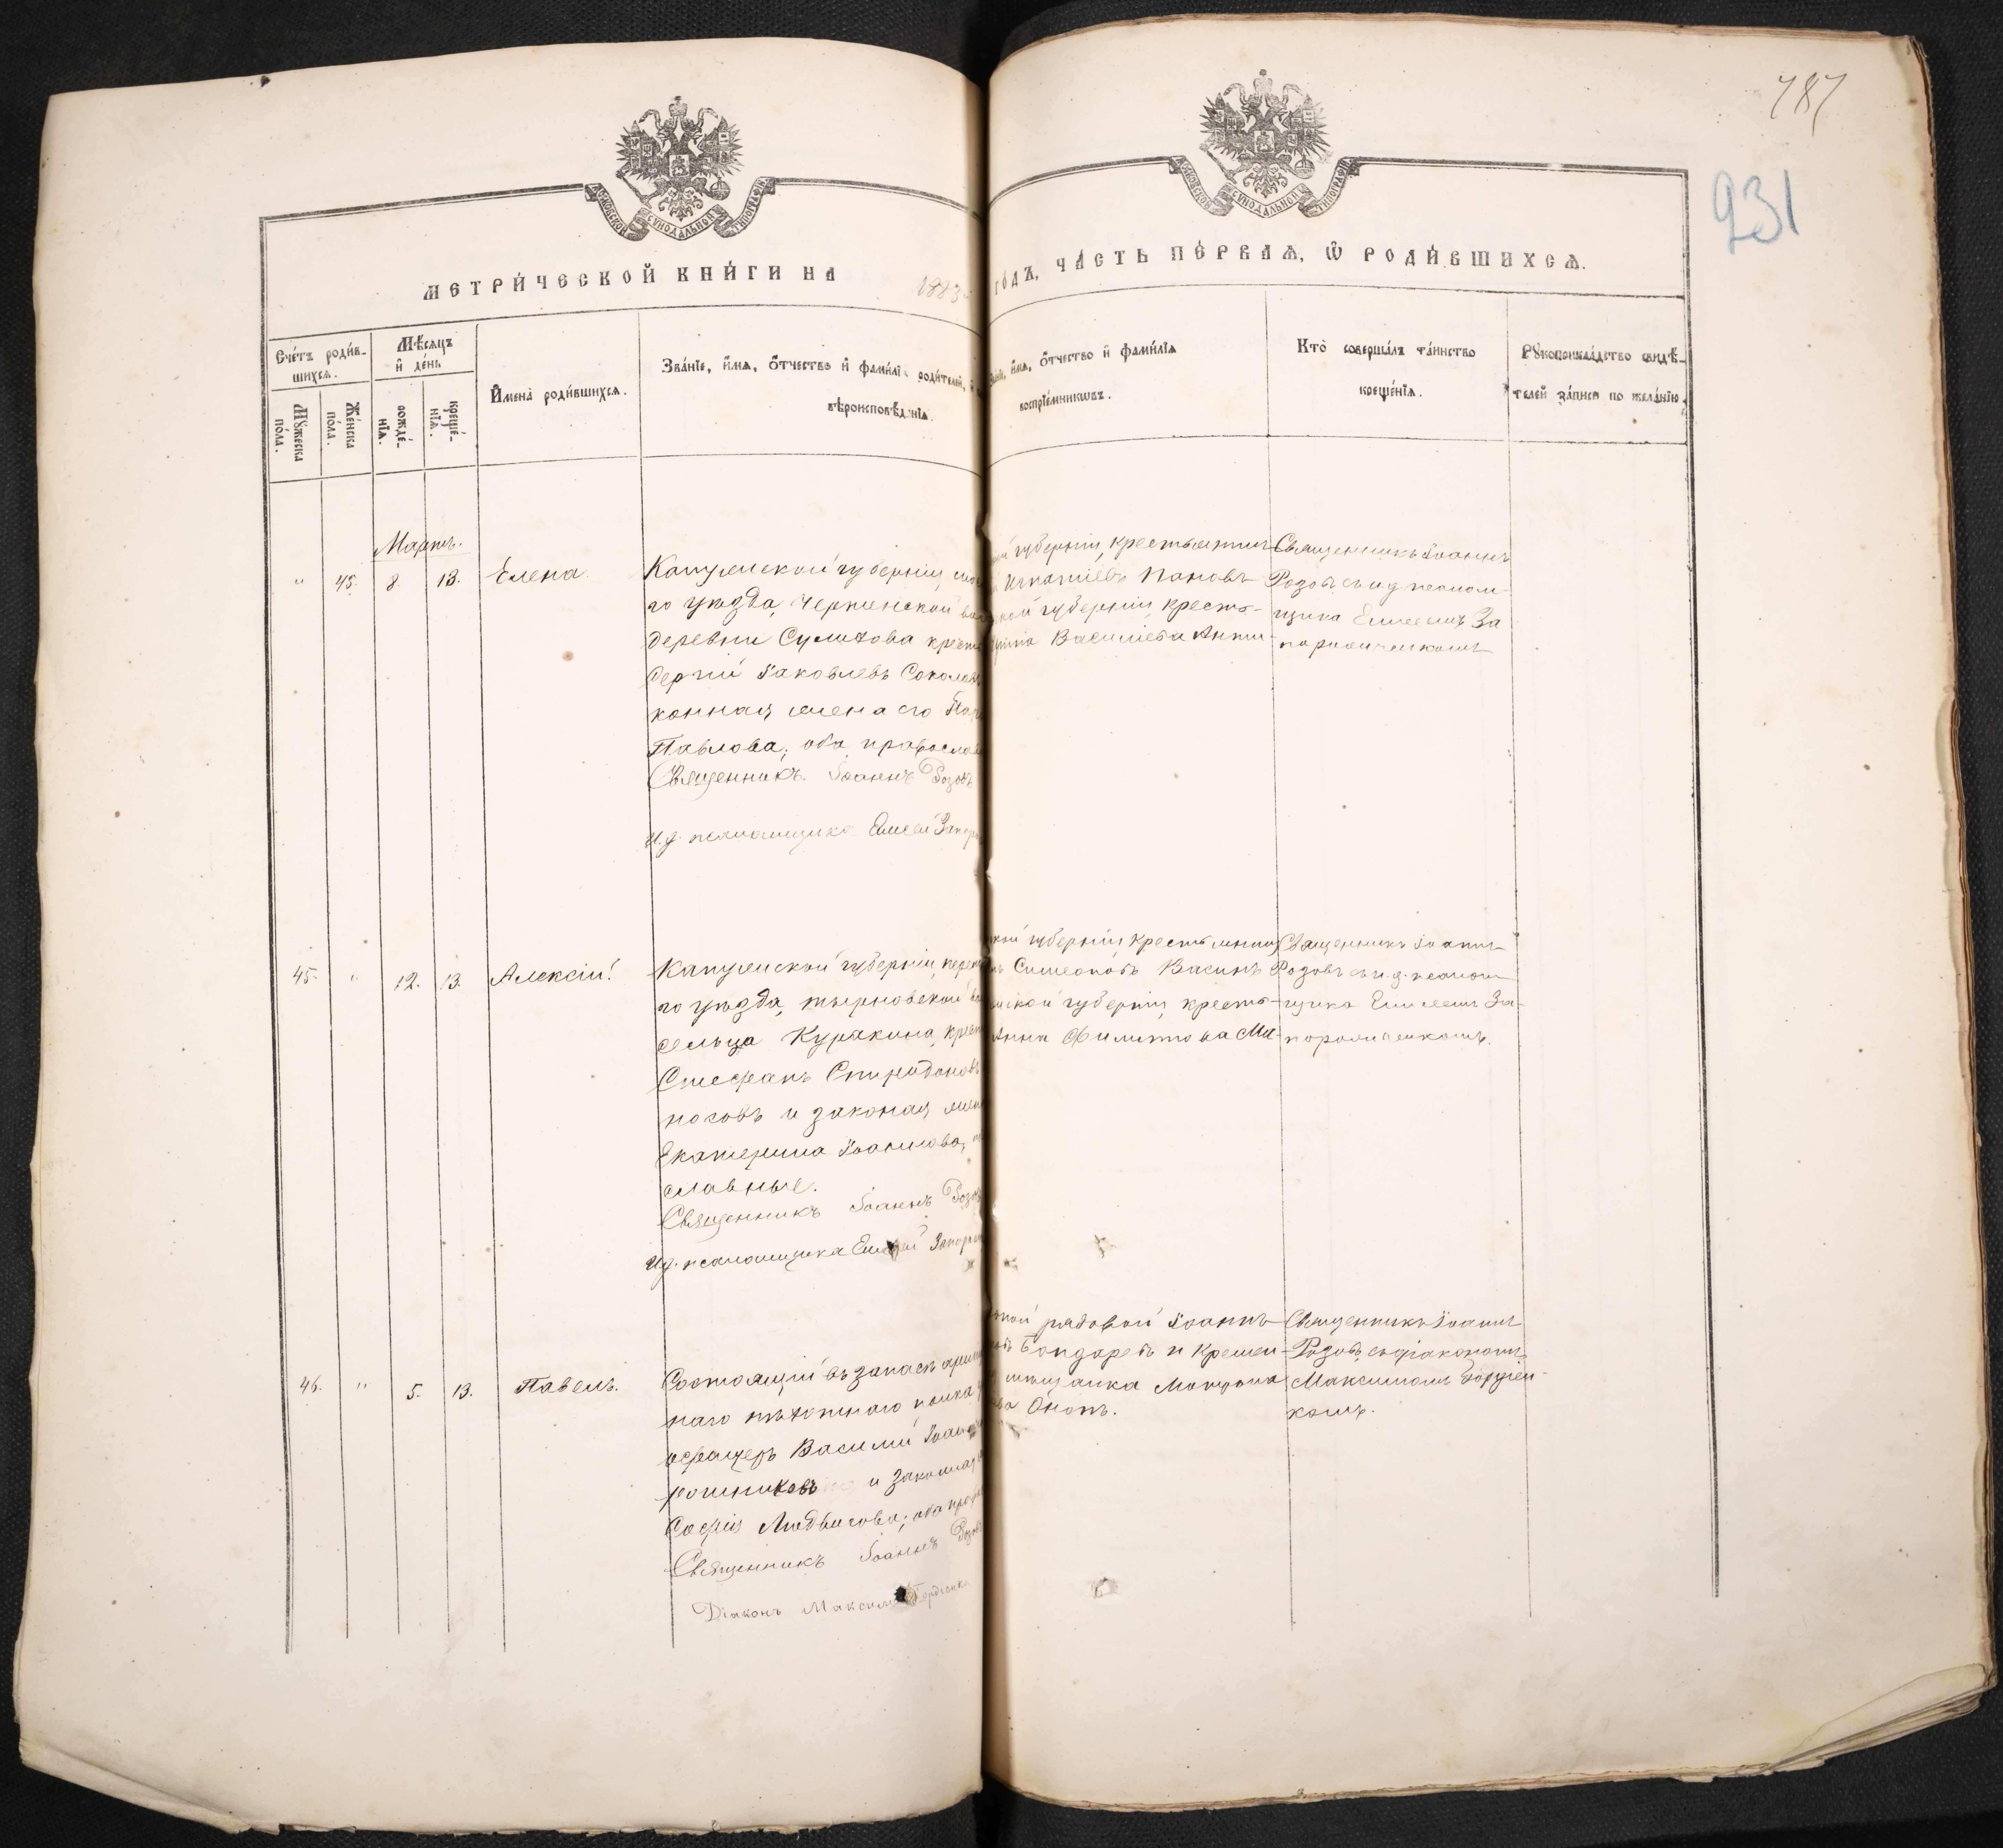 787
931
МОСКОВСКОЙ СѴНОДАЛЬНОЙ ТИПОГРАФІИ.
МОСКОВСКОЙ СѴНОДАЛЬНОЙ ТИПОГРАФІИ.
МЕТРИ́ЧЕСКОЙ КНИ́ГИ НА 1883
ГО́ДЪ, ЧА́СТЬ ПЕ́РВАѦ, Ѿ РОДИ́ВШИХСѦ.
Сче́тъ роди́в-
шихсѧ.
Мѣ́сѧцъ
и҆ де́нь
Мꙋ́жеска
по́ла.
Же́нска
по́ла.
рожде́-
нїѧ.
креще́-
нїѧ.
И҆мена̀ роди́вшихсѧ.
Зва́нїе, и҆́мѧ, ѻ҆́тчество и҆ фами́лї родителей,
вѣроисповѣд нїѧ.
и҆́мѧ, ѻ҆́тчество и҆ фами́лїѧ
воспрїе́мникѡвъ.
Кто̀ соверша́лъ та́инство
креще́нїѧ.
Рꙋкоприкла́дство свидѣ́-
телей за́писи по жела́нїю.
Мартъ.
" 45. 8. 13. Елена.
Калужской губерніи,
го уѣзда, Черпенской
деревни Сулихова крест
Сергій Іаковлевъ Соколовъ
конная жена его
Павлова; оба правосла
Священникъ Іоаннъ Розовъ
И. д. псаломщика Елисей Запор
губерніи, крестьянин
Игнатіевъ Пановъ
кой губерніи, кресть-
Василіева Анти-
Священникъ Іоаннъ
Розовъ съ и. д. псалом-
щика Елисеемъ За
45. " 12. 13. Алексій.
Калужской губерніи,
го уѣзда, тырновской
сельца Курякина, крест
Стефанъ Спиридоновъ
и законая жена
Екатерина Іоаннова,
славные.
Священникъ Іоаннъ Розовъ
И. д. псаломщика Елисей Запор
кой губерніи крестьянин
Симеоновъ Васинъ
ской губерніи, кресть-
Анна Филиппова Ми-
Священникъ Іоаннъ
Розовъ съ и. д. псалом-
щика Елисеемъ За-
46. " 5. 13. Павелъ.
Состоящій въ запасѣ арміи
наго пѣхотнаго полка
офицеръ Василій Іоан
и законная
Софія Людвигова; оба пра
Священникъ Іоаннъ Розовъ
Діаконъ Максим
рядовой Іоаннъ
Бондаревъ и Кремен-
мѣщанка Матрона
Онопъ.
Священникъ Іоаннъ
Розовъ, съ діакономъ
Максимомъ
комъ.